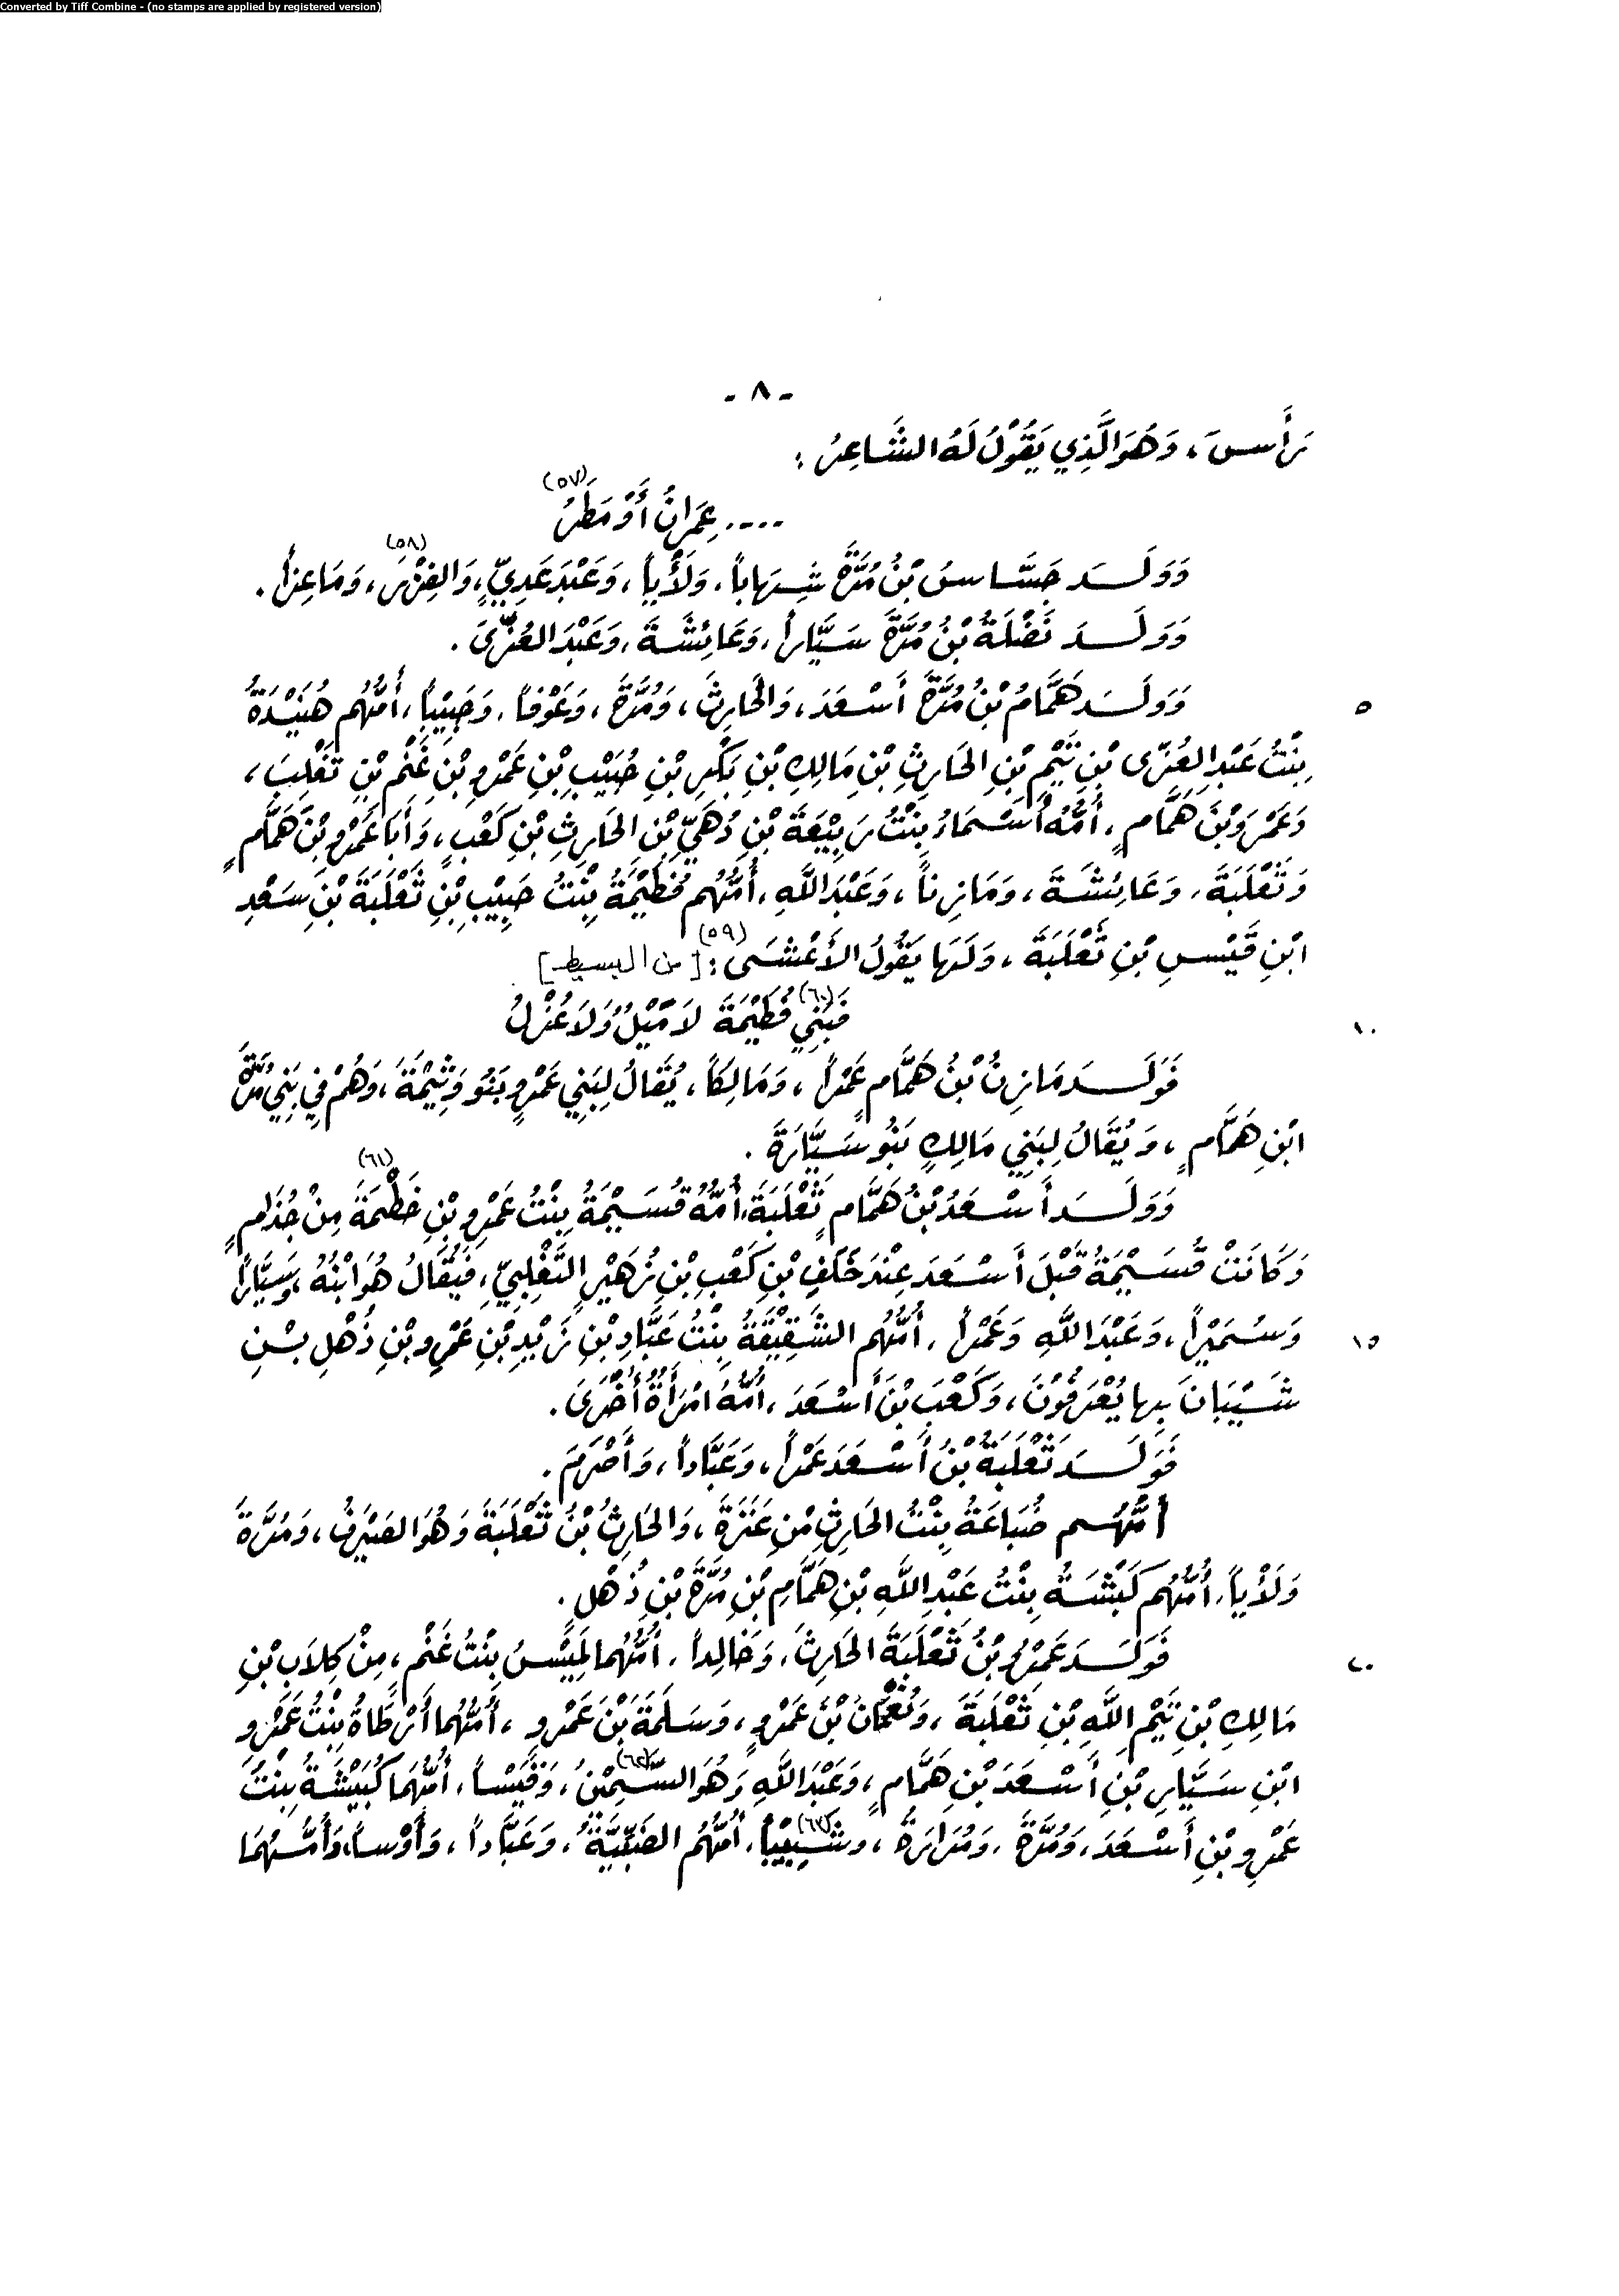 Converted by Tiff Combine - (no stamps are applied by registered version)
- ٨ -
رَأَسَ، وَهُوَ الَّذِي يَقُوْلُ لَهُ الشَّاعِرُ:
.... عِمَرانُ أَوْ مَطَرُ (٥٧)
وَوَلَـدَ جَسَّاسُ بْنُ مُرَّةَ شِهَاباً، وَلَأْياً، وَعَبْدَ عَدِيٍّ، وَالفِزْرَ (٥٨)، وَمَاعِزاً.
وَوَلَـدَ نَضْلَةُ بْنُ مُرَّةَ سَيَّاراً، وَعَائِشَةَ، وَعَبْدَ العُزَّىَ.
٥ وَوَلَـدَ هَمَّامُ بْنُ مُرَّةَ أَسْعَدَ، وَالحَارِثَ، وَمُرَّةَ، وَعَوْفاً، وَحَبِيْباً، أُمُّهُم هُنَيْدَةُ
بِنْتُ عَبْدِ العُزَّى بْنِ تَيْمِ بْنِ الحَارِثِ بْنِ مَالِكِ بْنِ بَكْرِ بْنِ حُبَيْبِ بْنِ عَمْرِو بْنِ غَنْمِ بْنِ تَغْلِبَ،
وَعَمْرَو بْنَ هَمَّامٍ، أُمُّهُ أَسْمَاءُ بِنْتُ رَبِيْعَةَ بْنِ دُهَيِّ بْنِ الحَارِثِ بْنِ كَعْبٍ، وَأَبَا عَمْرِو بْنَ هَمَّامٍ
وَثَعْلَبَةَ، وَعَائِشَةَ، وَمَازِناً، وَعَبْدَ اللَّهِ، أُمُّهُم فُطَيْمَةُ بِنْتُ حَبِيْبِ بْنِ ثَعْلَبَةَ بْنِ سَعْدِ
ابْنِ قَيْسِ بْنِ ثَعْلَبَةَ، وَلَهَا يَقُوْلُ الأَعْشَى (٥٩): [من البسيط]
١٠ فَبَنِي (٦٠) فُطَيْمَةَ لاَ مَيْلٌ وَلاَ عُزْلُ
فَوَلَـدَ مَازِنُ بْنُ هَمَّامٍ عَمْراً، وَمَالِكاً، يُقَالُ لِبَنِي عَمْرٍو بَنُو وَثِيْمَةَ، وَهُمْ فِي بَنِي مُرَّةَ
ابْنِ هَمَّامٍ، وَيُقَالُ لِبَنِي مَالِكٍ بَنُو سَيَّارَةَ.
وَوَلَـدَ أَسْعَدُ بْنُ هَمَّامٍ ثَعْلَبَةَ، أُمُّهُ قُسَيْمَةُ بِنْتُ عَمْرِو بْنِ خَطْمَةَ (٦١) مِنْ جُذَامٍ
وَكَانَتْ قُسَيْمَةُ قَبْلَ أَسْعَدَ عِنْدَ خَلَفِ بْنِ كَعْبِ بْنِ زُهَيْرٍ التَّغْلِبِيِّ، فَيُقَالُ هُوَ ابْنُهُ، وَسَيَّاراً
١٥ وَسُمَيْراً، وَعَبْدَ اللَّهِ وَعَمْراً، أُمُّهُم الشَّقِيْقَةُ بِنْتُ عَبَّادِ بْنِ زَيْدِ بْنِ عَمْرِو بْنِ ذُهْلِ بْـنِ
شَيْبَانَ بِهَا يُعْرَفُوْنَ، وَكَعْبَ بْنَ أَسْعَدَ، أُمُّهُ امْرَأَةٌ أُخْرَىَ.
فَوَلَـدَ ثَعْلَبَةُ بْنُ أَسْعَدَ عَمْراً، وَعَبَّاداً، وَأَصْرَمَ.
أُمُّهُـم ضُبَاعَةُ بِنْتُ الحَارِثِ مِنْ عَنَزَةَ، وَالحَارِثَ بْنُ ثَعْلَبَةَ وَهُوَ الصَيْرَفُ، وَمُرَّةَ
وَلَأْياً، أُمُّهُم كَبْشَةُ بِنْتُ عَبْدِ اللَّهِ بْنِ هَمَّامِ بْنِ مُرَّةَ بْنِ ذُهْلٍ.
٢٠ فَوَلَـدَ عَمْرُو بْنُ ثَعْلَبَةَ الحَارِثَ، وَخَالِداً، أُمُّهُما لَمِيْسُ بِنْتُ غَنْمٍ، مِنْ كِلاَبِ بْنِ
مَالِكِ بْنِ تَيْمِ اللَّهِ بْنِ ثَعْلَبَةَ، وَنُعْمَانَ بْنَ عَمْرٍو، وَسَلَمَةَ بْنَ عَمْرٍو، أُمُّهُما أَرْطَاةُ بِنْتُ عَمْرِو
ابْنِ سَيَّارِ بْنِ أَسْعَدَ بْنِ هَمَّامٍ، وَعَبْدَ اللَّهِ وَهُوَ السَّمِيْنُ (٦٢)، وَقَيْساً، أُمُّهُمَا كُبَيْشَةُ بِنْتُ
عَمْرِو بْنِ أَسْعَدَ، وَمُرَّةَ، وَمُرَارَةَ، وشُبَيْباً، أُمُّهُم الضَبِّيَّةُ، وَعَبَّاداً، وَأَوْساً، وَأُمُّـهُمَا